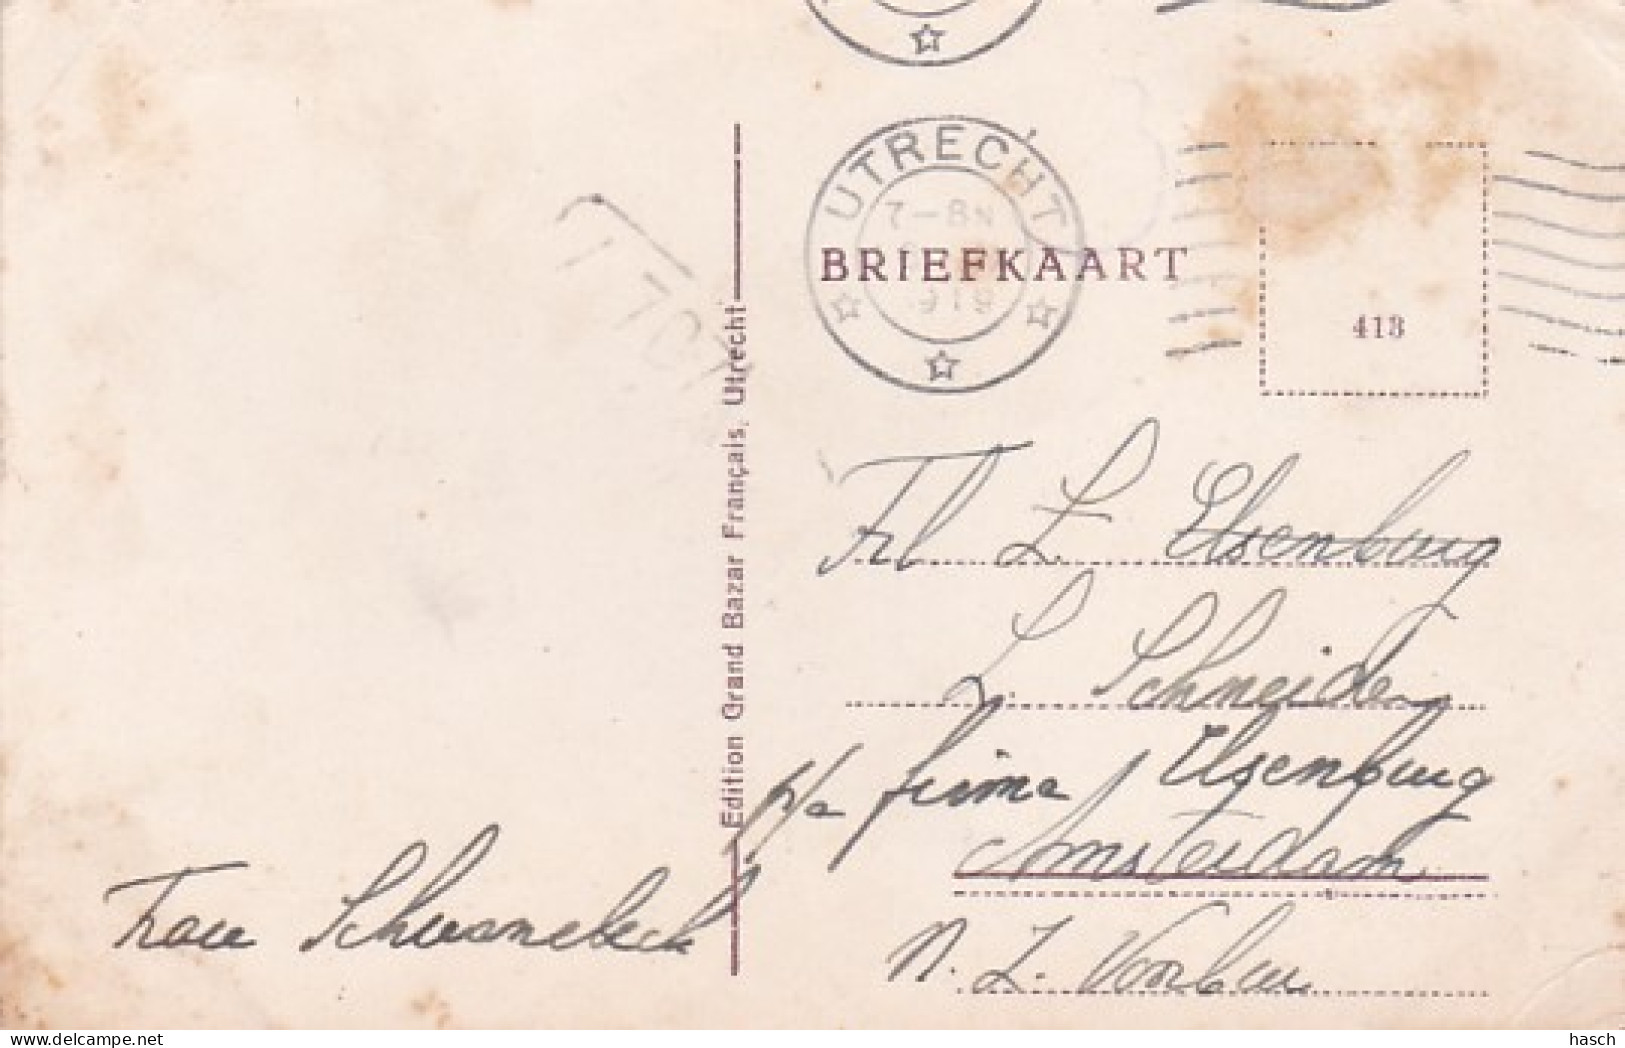 UTRECHT
7-8N
1919
BRIEFKAART
413
Edition Grand Bazar Français, Utrecht
Frl L Elsenburg
L. Schneider
p/a firma Elsenburg
Amsterdam
N. Z. Voorbur
Frau Schwanebeck
delcampe.net
hasch